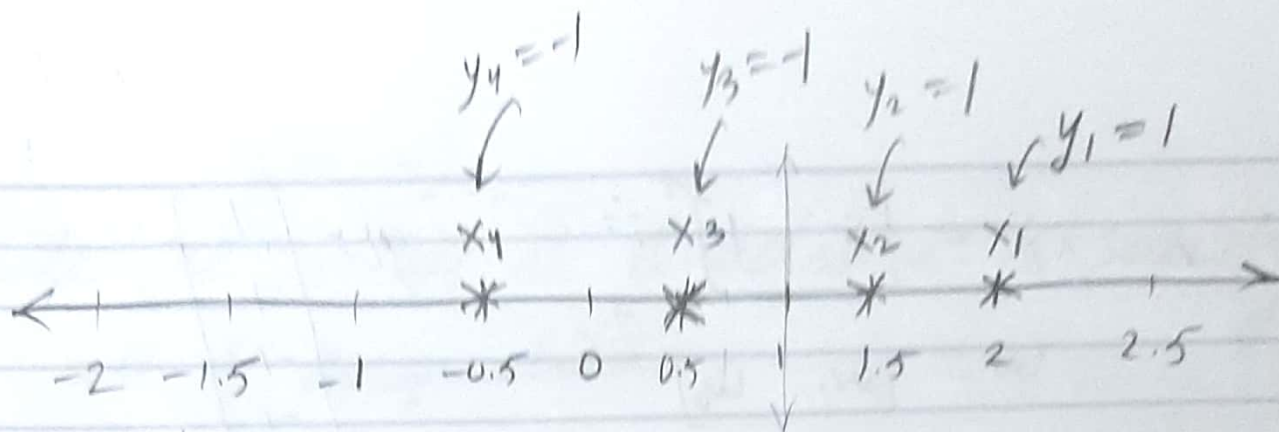 y₄ = -1 y₃ = -1 y₂ = 1 y₁ = 1
x₄ x₃ x₂ x₁
-2 -1.5 -1 -0.5 0 0.5 1 1.5 2 2.5